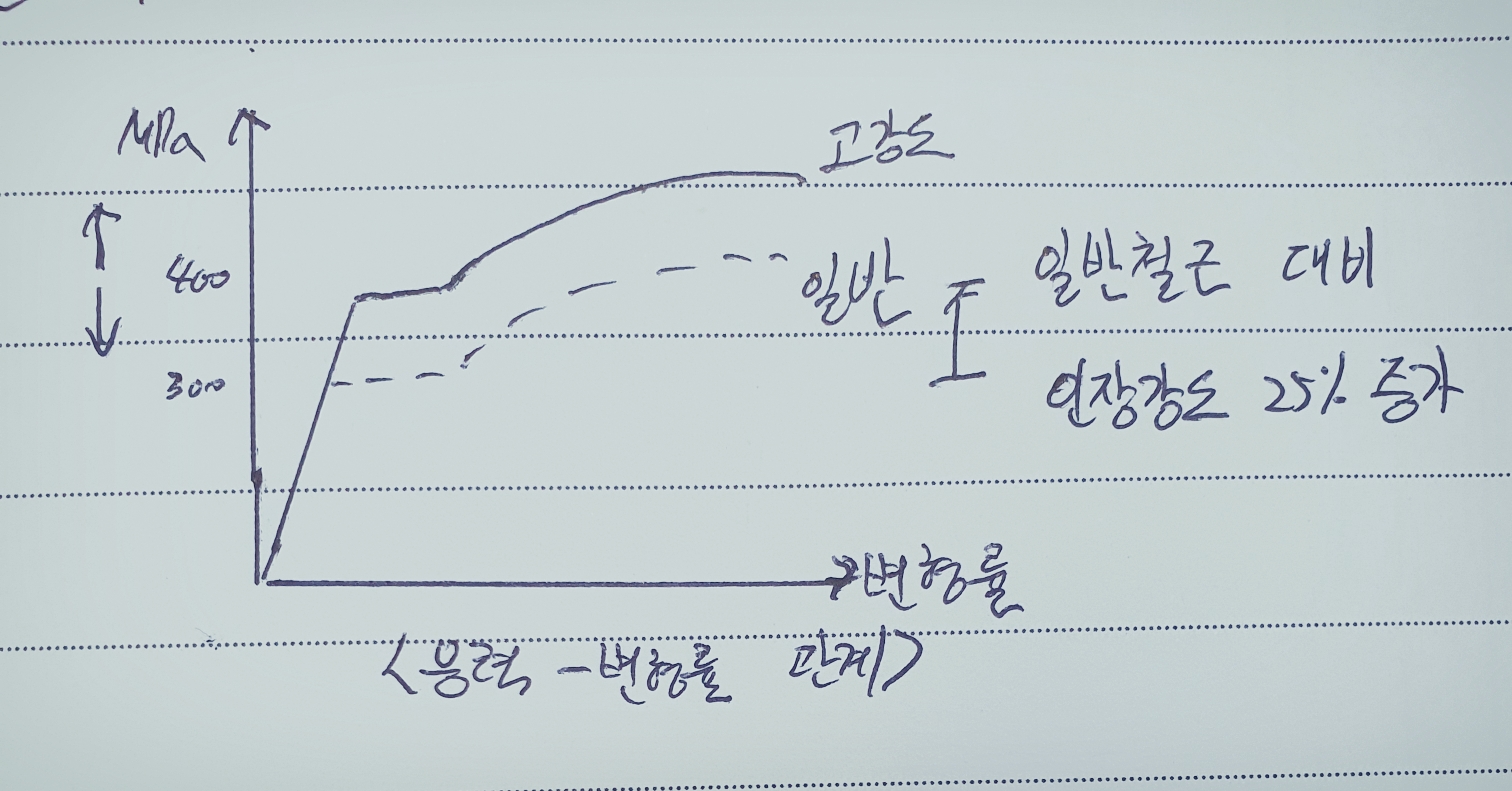 MPa
고강도
400
일반
일반철근 대비
300
인장강도 25% 증가
변형률
<응력 - 변형률 관계>